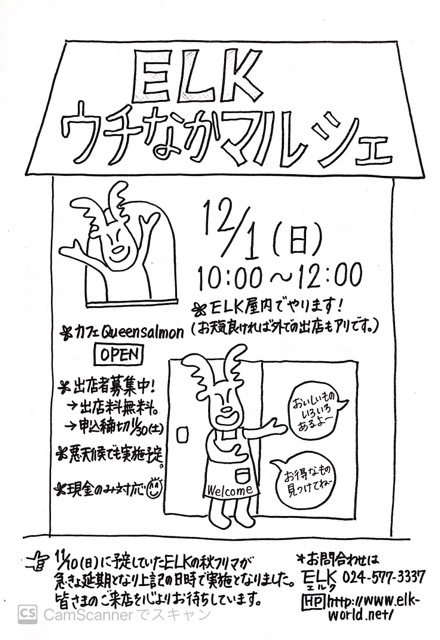 ELK
ウチなかマルシェ
12/1(日)
10:00〜12:00
※ELK屋内でやります!
(お天気良ければ外での出店もアリです。)
※カフェQueensalmon
OPEN
※出店者募集中!
→出店料無料。
→申込締切11/30(土)
※悪天候でも実施予定。
※現金のみ対応
おいしいもの
いろいろ
あるよ〜
お得なもの
見つけてね〜
Welcome
11/10(日)に予定していたELKの秋フリマが
急きょ延期となり上記の日時で実施となりました。
皆さまのご来店を心よりお待ちしています。
*お問合わせは
ELK 024-577-3337
エルク
HP http://www.elk-
world.net/
CS CamScanner でスキャン